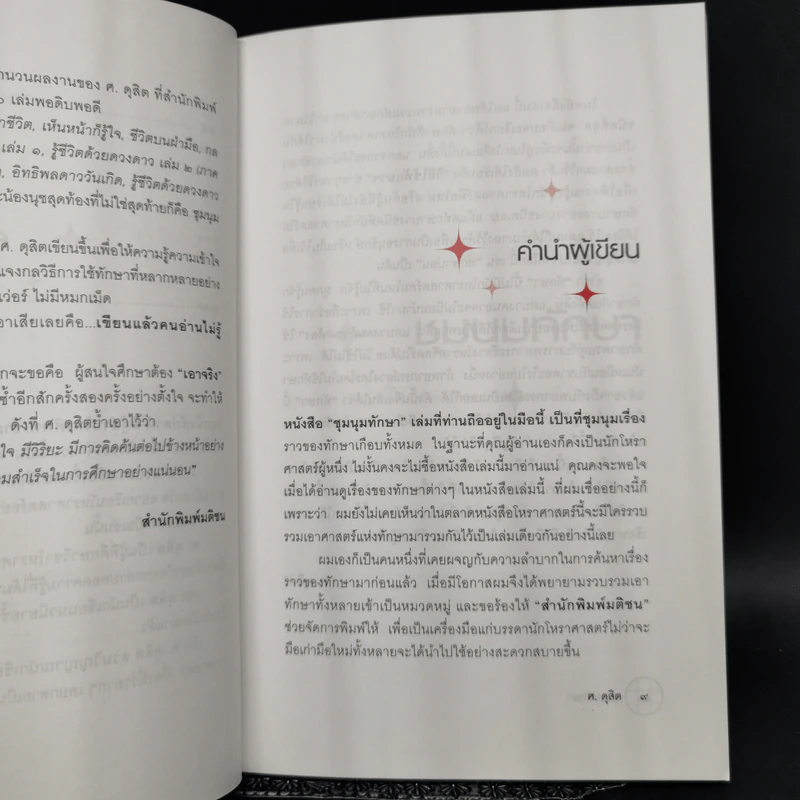 ำนวนผลงานของ ศ. ดุสิต ที่สำนักพิมพ์
๖ เล่มพอดิบพอดี
าชีวิต, เห็นหน้าก็รู้ใจ, ชีวิตบนฝ่ามือ, กล
เล่ม ๑, รู้ชีวิตด้วยดวงดาว เล่ม ๒ (ภาค
อิทธิพลดาววันเกิด, รู้ชีวิตด้วยดวงดาว
ะน้องนุชสุดท้องที่ไม่ใช่สุดท้ายก็คือ ชุมนุม
ศ. ดุสิตเขียนขึ้นเพื่อให้ความรู้ความเข้าใจ
แจงกลวิธีการใช้ทักษาที่หลากหลายอย่าง
เว่อร์ ไม่มีหมกเม็ด
าเสียเลยคือ...เขียนแล้วคนอ่านไม่รู้
กจะขอคือ ผู้สนใจศึกษาต้อง “เอาจริง”
ซ้ำอีกสักครั้งสองครั้งอย่างตั้งใจ จะทำให้
ดังที่ ศ. ดุสิตย้ำเอาไว้ว่า
ใจ มีวิริยะ มีการคิดค้นต่อไปข้างหน้าอย่าง
มสำเร็จในการศึกษาอย่างแน่นอน”
สำนักพิมพ์มติชน
คำนำผู้เขียน
หนังสือ “ชุมนุมทักษา” เล่มที่ท่านถืออยู่ในมือนี้ เป็นที่ชุมนุมเรื่อง
ราวของทักษาเกือบทั้งหมด ในฐานะที่คุณผู้อ่านเองก็คงเป็นนักโหรา
ศาสตร์ผู้หนึ่ง ไม่งั้นคงจะไม่ซื้อหนังสือเล่มนี้มาอ่านแน่ คุณคงจะพอใจ
เมื่อได้อ่านดูเรื่องของทักษาต่างๆ ในหนังสือเล่มนี้ ที่ผมเชื่ออย่างนี้ก็
เพราะว่า ผมยังไม่เคยเห็นว่าในตลาดหนังสือโหราศาสตร์นี้จะมีใครรวบ
รวมเอาศาสตร์แห่งทักษามารวมกันไว้เป็นเล่มเดียวกันอย่างนี้เลย
ผมเองก็เป็นคนหนึ่งที่เคยผจญกับความลำบากในการค้นหาเรื่อง
ราวของทักษามาก่อนแล้ว เมื่อมีโอกาสผมจึงได้พยายามรวบรวมเอา
ทักษาทั้งหลายเข้าเป็นหมวดหมู่ และขอร้องให้ “สำนักพิมพ์มติชน”
ช่วยจัดการพิมพ์ให้ เพื่อเป็นเครื่องมือแก่บรรดานักโหราศาสตร์ไม่ว่าจะ
มือเก่ามือใหม่ทั้งหลายจะได้นำไปใช้อย่างสะดวกสบายขึ้น
ศ. ดุสิต ๙